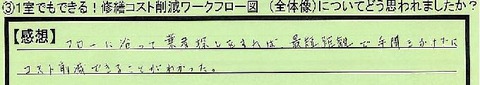 ③1室でもできる！修繕コスト削減ワークフロー図 （全体像）についてどう思われましたか？
【感想】 フローに沿って業者探しをすれば 最短距離で手間をかけずに
コスト削減できることがわかった。